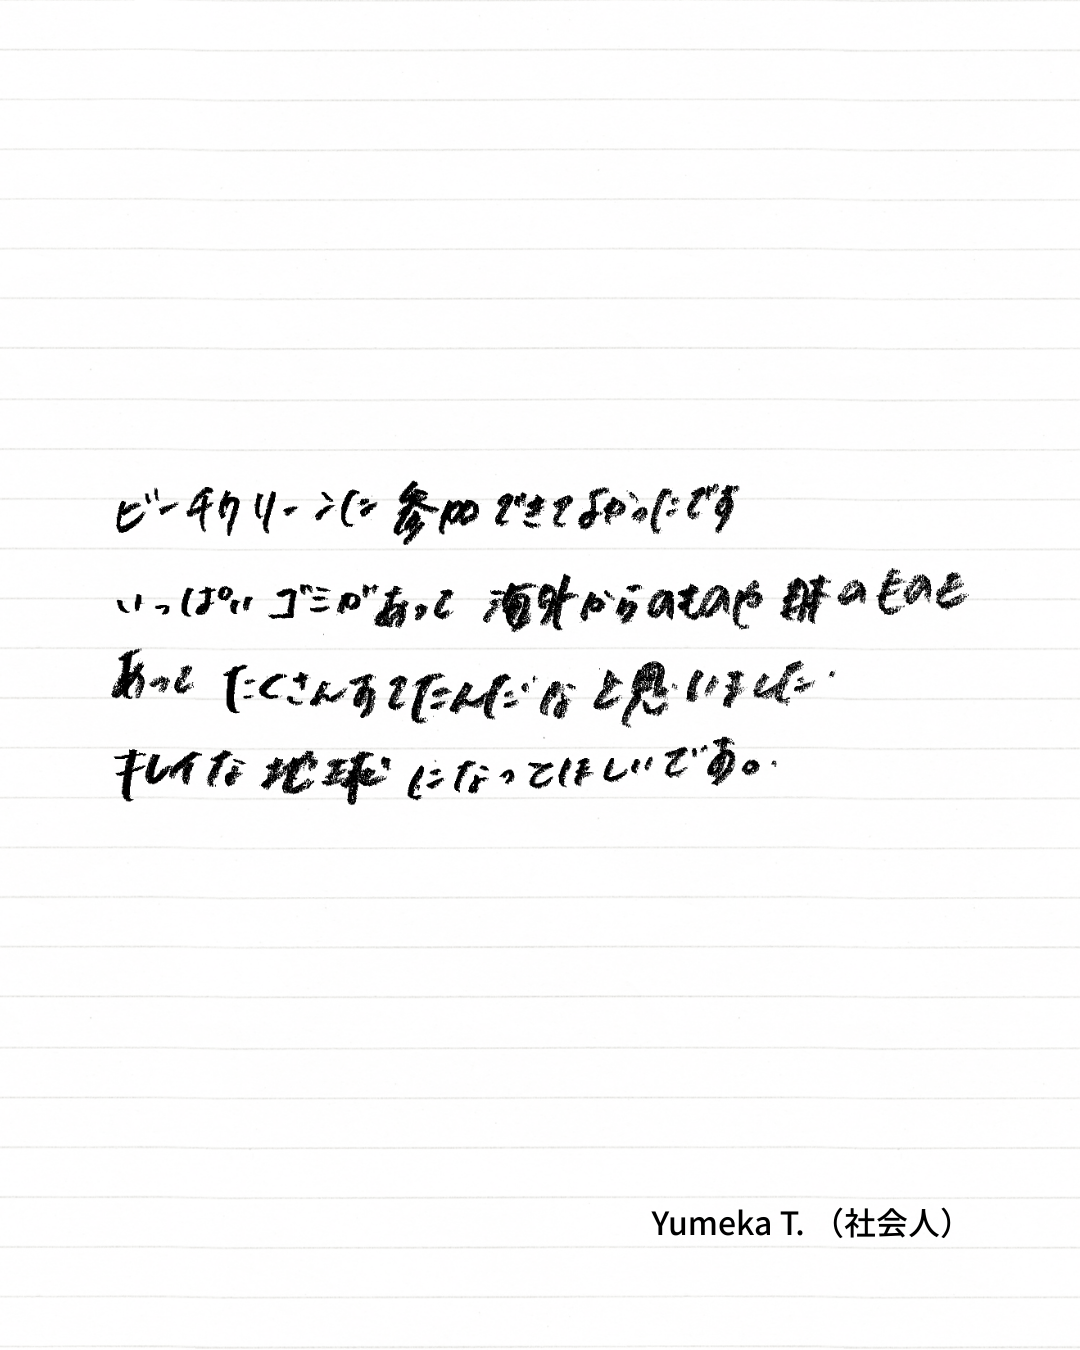 ビーチクリーンに参加できてよかったです
いっぱいゴミがあって海外からのものや のものと
あって たくさん なと思いました.
キレイな地球になってほしいです。
Yumeka T. （社会人）